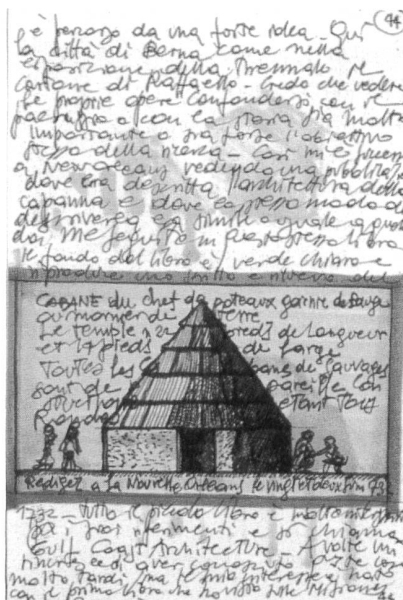 44
è percorso da una forte idea - Qui
la città di Berna come nella
esposizione della Triennale il
cartone di Raffaello - Credo che vedere
le proprie opere confondersi con il
paesaggio o con la storia sia molto
importante o sia forse l'obiettivo
stesso della ricerca - Così mi è successo
a New Orleans vedendo una pubblicazione
dove era descritta l'architettura della
capanna e dove lo stesso modo di
descrivere era simile o uguale a quello
da me seguito in questo stesso libro
Il fondo del libro è verde chiaro e
riproduce uno scritto e rilievo del
CABANE du chef de poteaux garnie de bauge
ou maniere de terre
Le temple a 22 pieds de Longueur
et 14 pieds de Large
Toutes les cabanes de sauvages
sont de pareille con
struction etant Tous
Rondes
Redigez a la Nouvelle Orleans le vingt et deux juin 73
1732 - Tutto il piccolo libro è molto
per i suoi riferimenti e si chiama
Gulf Coast Architecture - A volte mi
rincresce di aver conosciuto queste cose
molto tardi, ma il mio interesse è nato
con il primo libro che ho visto sulle Missiones